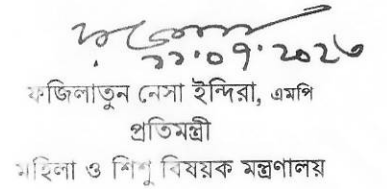 ১১.০৭.২০২৩
ফজিলাতুন নেসা ইন্দিরা, এমপি
প্রতিমন্ত্রী
মহিলা ও শিশু বিষয়ক মন্ত্রণালয়